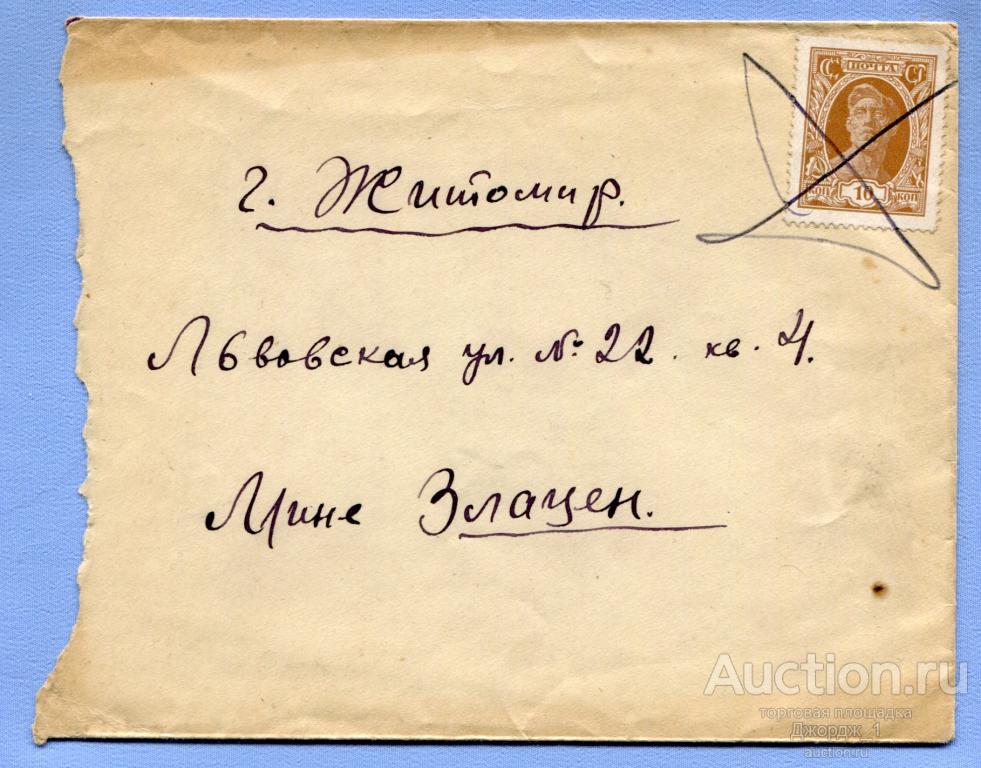 ПОЧТА
КОП 10 КОП
г. Житомир.
Львовская ул. № 22. кв. 4.
Мине Злацен.
Auction.ru
торговая площадка
Джордж_1
auction.ru